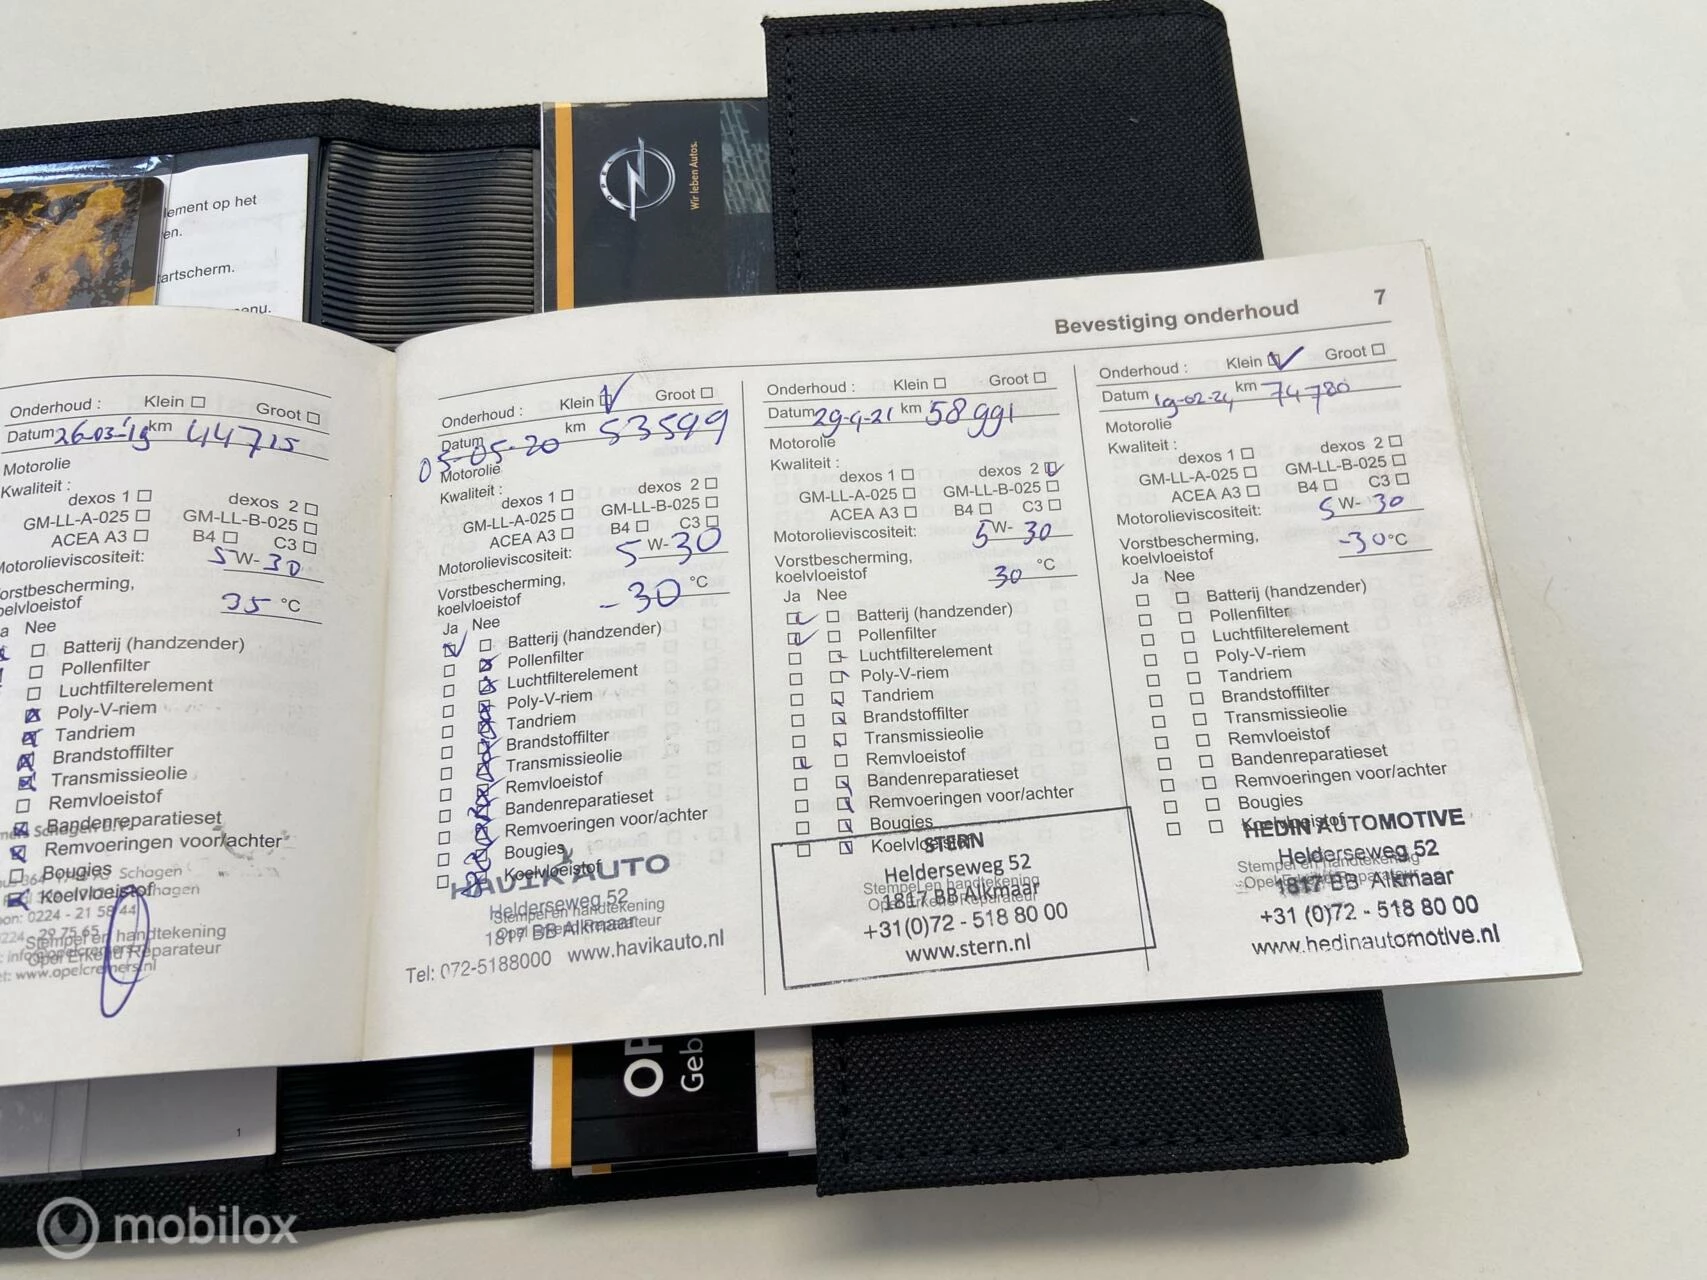 OPEL
Wir leben Autos.
lement op het
en.
artscherm.
enu.
Bevestiging onderhoud 7
Onderhoud : Klein Groot
Datum 26-03-'19 km 44715
Motorolie
Kwaliteit :
dexos 1 dexos 2
GM-LL-A-025 GM-LL-B-025
ACEA A3 B4 C3
Motorolieviscositeit: 5 W- 30
orstbescherming,
oelvloeistof 35 °C
a Nee
Batterij (handzender)
Pollenfilter
Luchtfilterelement
Poly-V-riem
Tandriem
Brandstoffilter
Transmissieolie
Remvloeistof
Bandenreparatieset
Remvoeringen voor/achter
Bougies
Koelvloeistof
Schagen
oon: 0224 - 21 58 44
0224 - 29 75 65
Stempel en handtekening
Opel Erkend Reparateur
: info@opelcremers.nl
et: www.opelcremers.nl
Onderhoud : Klein Groot
Datum 05-05-20 km 53599
Motorolie
Kwaliteit :
dexos 1 dexos 2
GM-LL-A-025 GM-LL-B-025
ACEA A3 B4 C3
Motorolieviscositeit: 5 W- 30
Vorstbescherming,
koelvloeistof -30 °C
Ja Nee
Batterij (handzender)
Pollenfilter
Luchtfilterelement
Poly-V-riem
Tandriem
Brandstoffilter
Transmissieolie
Remvloeistof
Bandenreparatieset
Remvoeringen voor/achter
Bougies
Koelvloeistof
HAVIK AUTO
Helderseweg 52
Stempel en handtekening
1817 BB Alkmaar
Opel Erkend Reparateur
Tel: 072-5188000 www.havikauto.nl
Onderhoud : Klein Groot
Datum 29-4-21 km 58991
Motorolie
Kwaliteit :
dexos 1 dexos 2
GM-LL-A-025 GM-LL-B-025
ACEA A3 B4 C3
Motorolieviscositeit: 5 W- 30
Vorstbescherming,
koelvloeistof 30 °C
Ja Nee
Batterij (handzender)
Pollenfilter
Luchtfilterelement
Poly-V-riem
Tandriem
Brandstoffilter
Transmissieolie
Remvloeistof
Bandenreparatieset
Remvoeringen voor/achter
Bougies
Koelvloeistof
STERN
Helderseweg 52
Stempel en handtekening
1817 BB Alkmaar
Opel Erkend Reparateur
+31(0)72 - 518 80 00
www.stern.nl
Onderhoud : Klein Groot
Datum 19-02-24 km 74780
Motorolie
Kwaliteit :
dexos 1 dexos 2
GM-LL-A-025 GM-LL-B-025
ACEA A3 B4 C3
Motorolieviscositeit: 5 W- 30
Vorstbescherming,
koelvloeistof -30 °C
Ja Nee
Batterij (handzender)
Pollenfilter
Luchtfilterelement
Poly-V-riem
Tandriem
Brandstoffilter
Transmissieolie
Remvloeistof
Bandenreparatieset
Remvoeringen voor/achter
Bougies
Koelvloeistof
HEDIN AUTOMOTIVE
Helderseweg 52
Stempel en handtekening
1817 BB Alkmaar
Opel Erkend Reparateur
+31 (0)72 - 518 80 00
www.hedinautomotive.nl
OP
Geb
1
mobilox